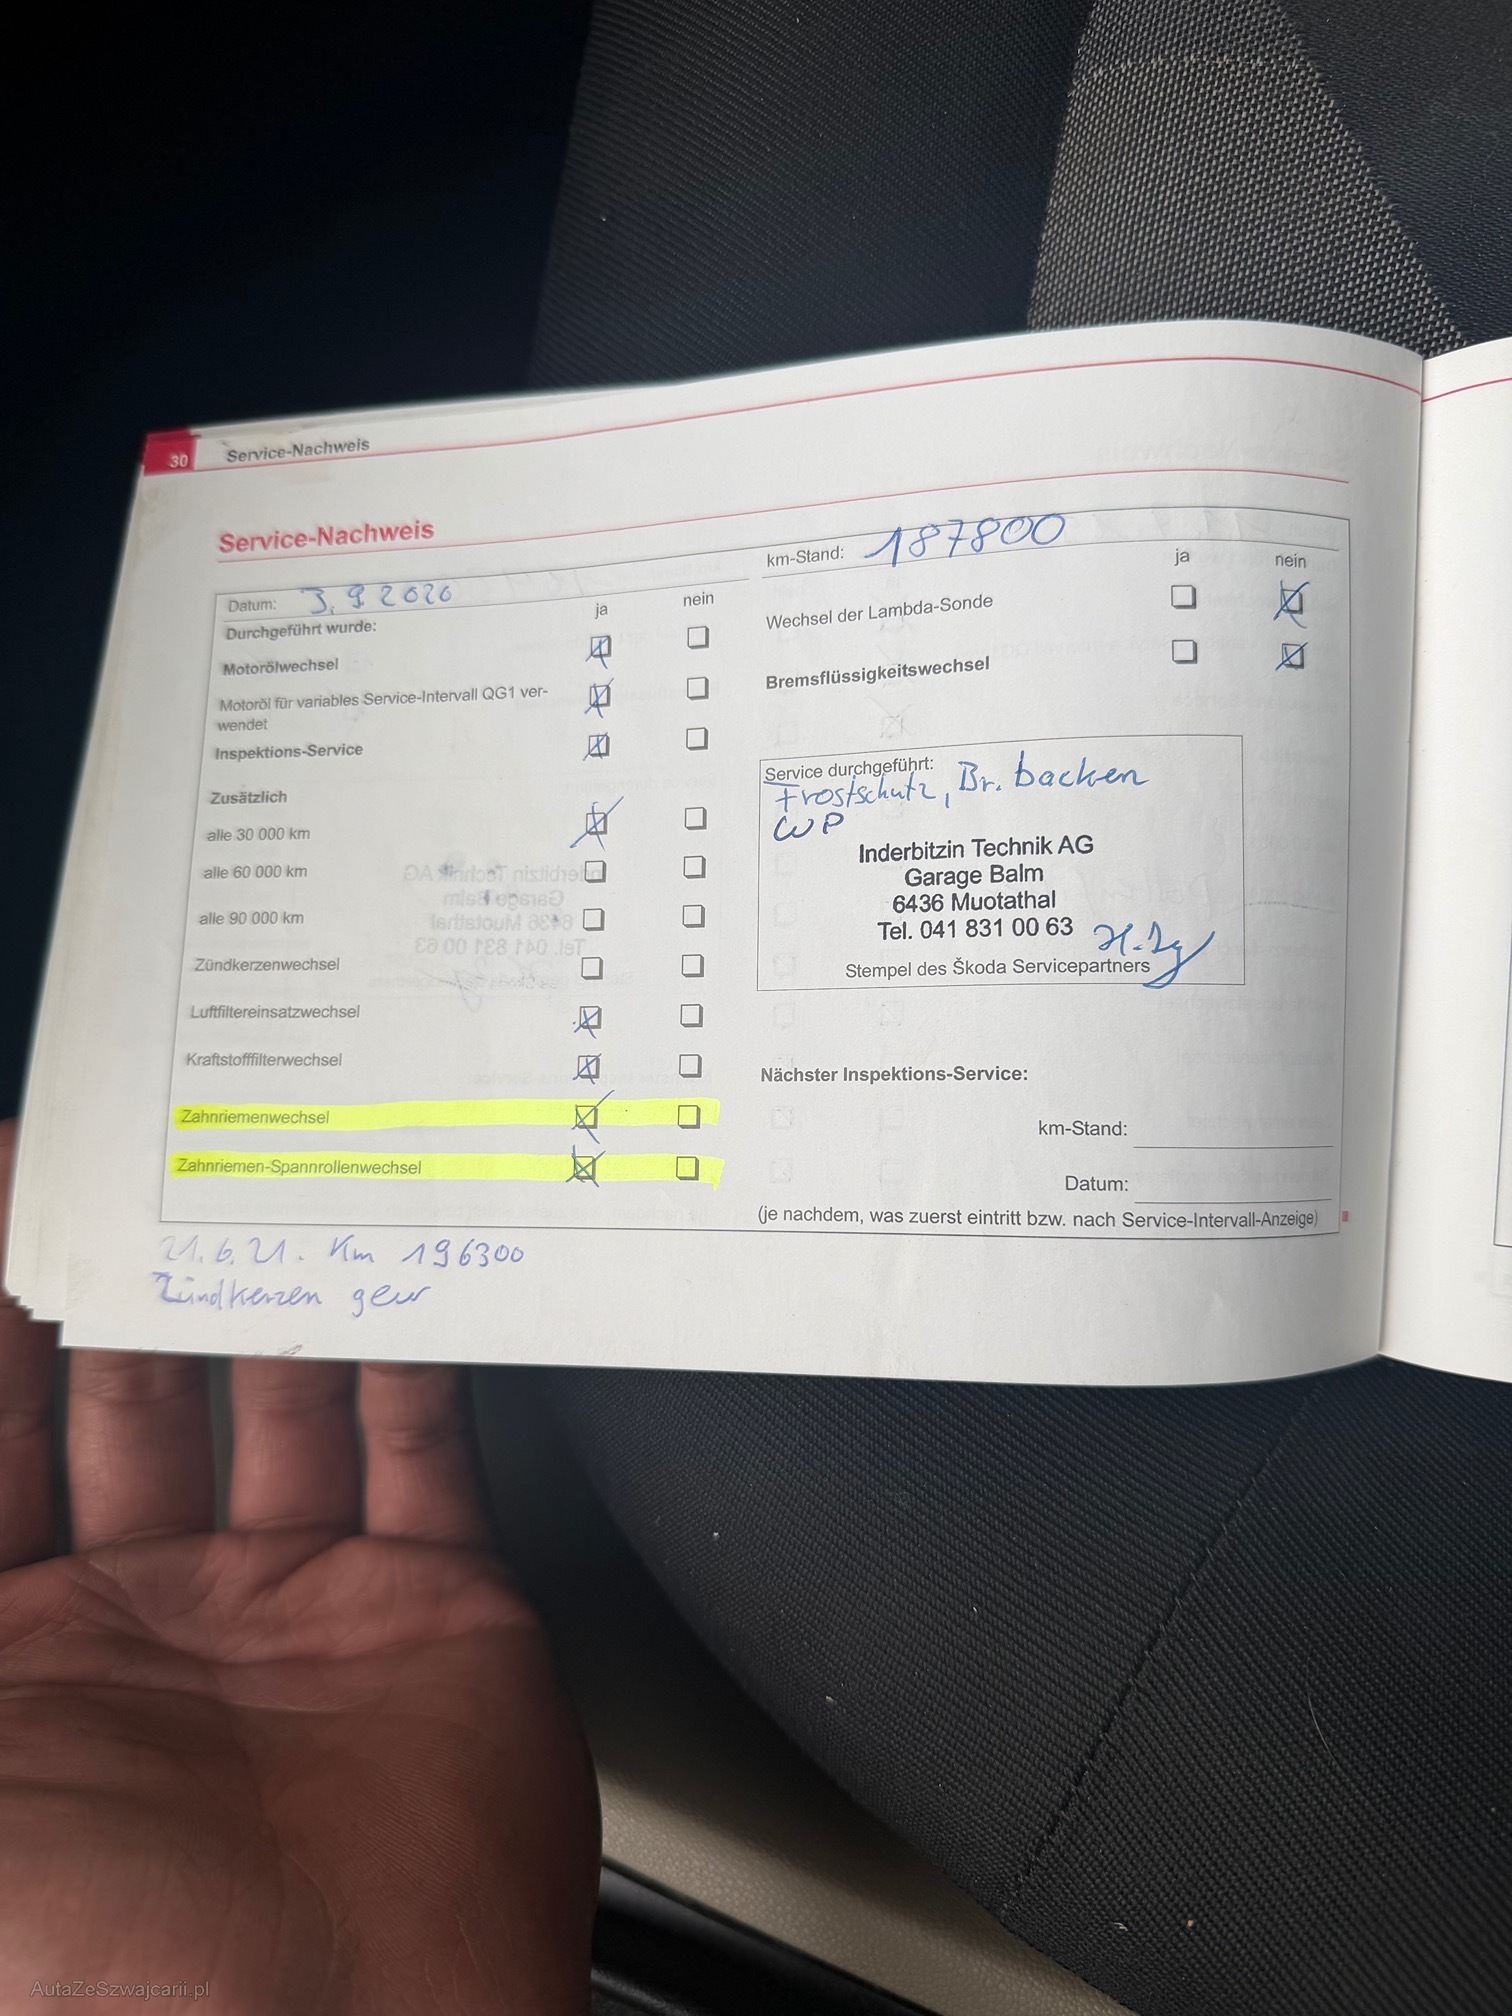 30 Service-Nachweis
Service-Nachweis
Datum: 3.9.2020
ja nein
Durchgeführt wurde:
Motorölwechsel
Motoröl für variables Service-Intervall QG1 ver-
wendet
Inspektions-Service
Zusätzlich
alle 30 000 km
alle 60 000 km
alle 90 000 km
Zündkerzenwechsel
Luftfiltereinsatzwechsel
Kraftstofffilterwechsel
Zahnriemenwechsel
Zahnriemen-Spannrollenwechsel
km-Stand: 187800
ja nein
Wechsel der Lambda-Sonde
Bremsflüssigkeitswechsel
Service durchgeführt:
Frostschutz, Br. backen
WP
Inderbitzin Technik AG
Garage Balm
6436 Muotathal
Tel. 041 831 00 63
Stempel des Škoda Servicepartners
Nächster Inspektions-Service:
km-Stand:
Datum:
(je nachdem, was zuerst eintritt bzw. nach Service-Intervall-Anzeige)
21.6.21. Km 196300
Zündkerzen gew
AutaZeSzwajcarii.pl